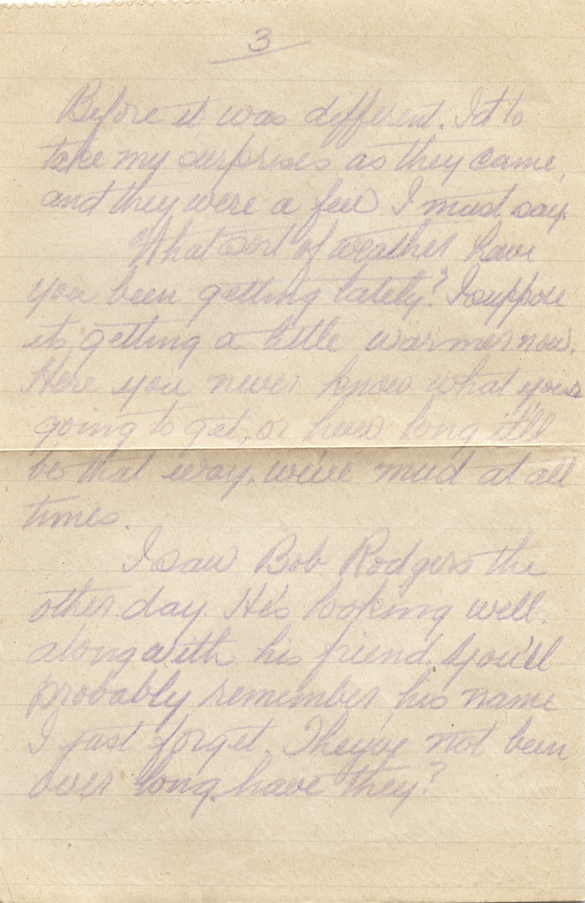 3
Before it was different. I'd to
take my surprises as they came,
and they were a few I must say.
What sort of weather have
you been getting lately? I suppose
its getting a little warmer now.
Here you never know what your
going to get, or how long it'll
be that way, we've mud at all
times.
I saw Bob Rodgers the
other day. He's looking well.
along with his friend. You'll
probably remember his name
I just forget. They've not been
over long have they?